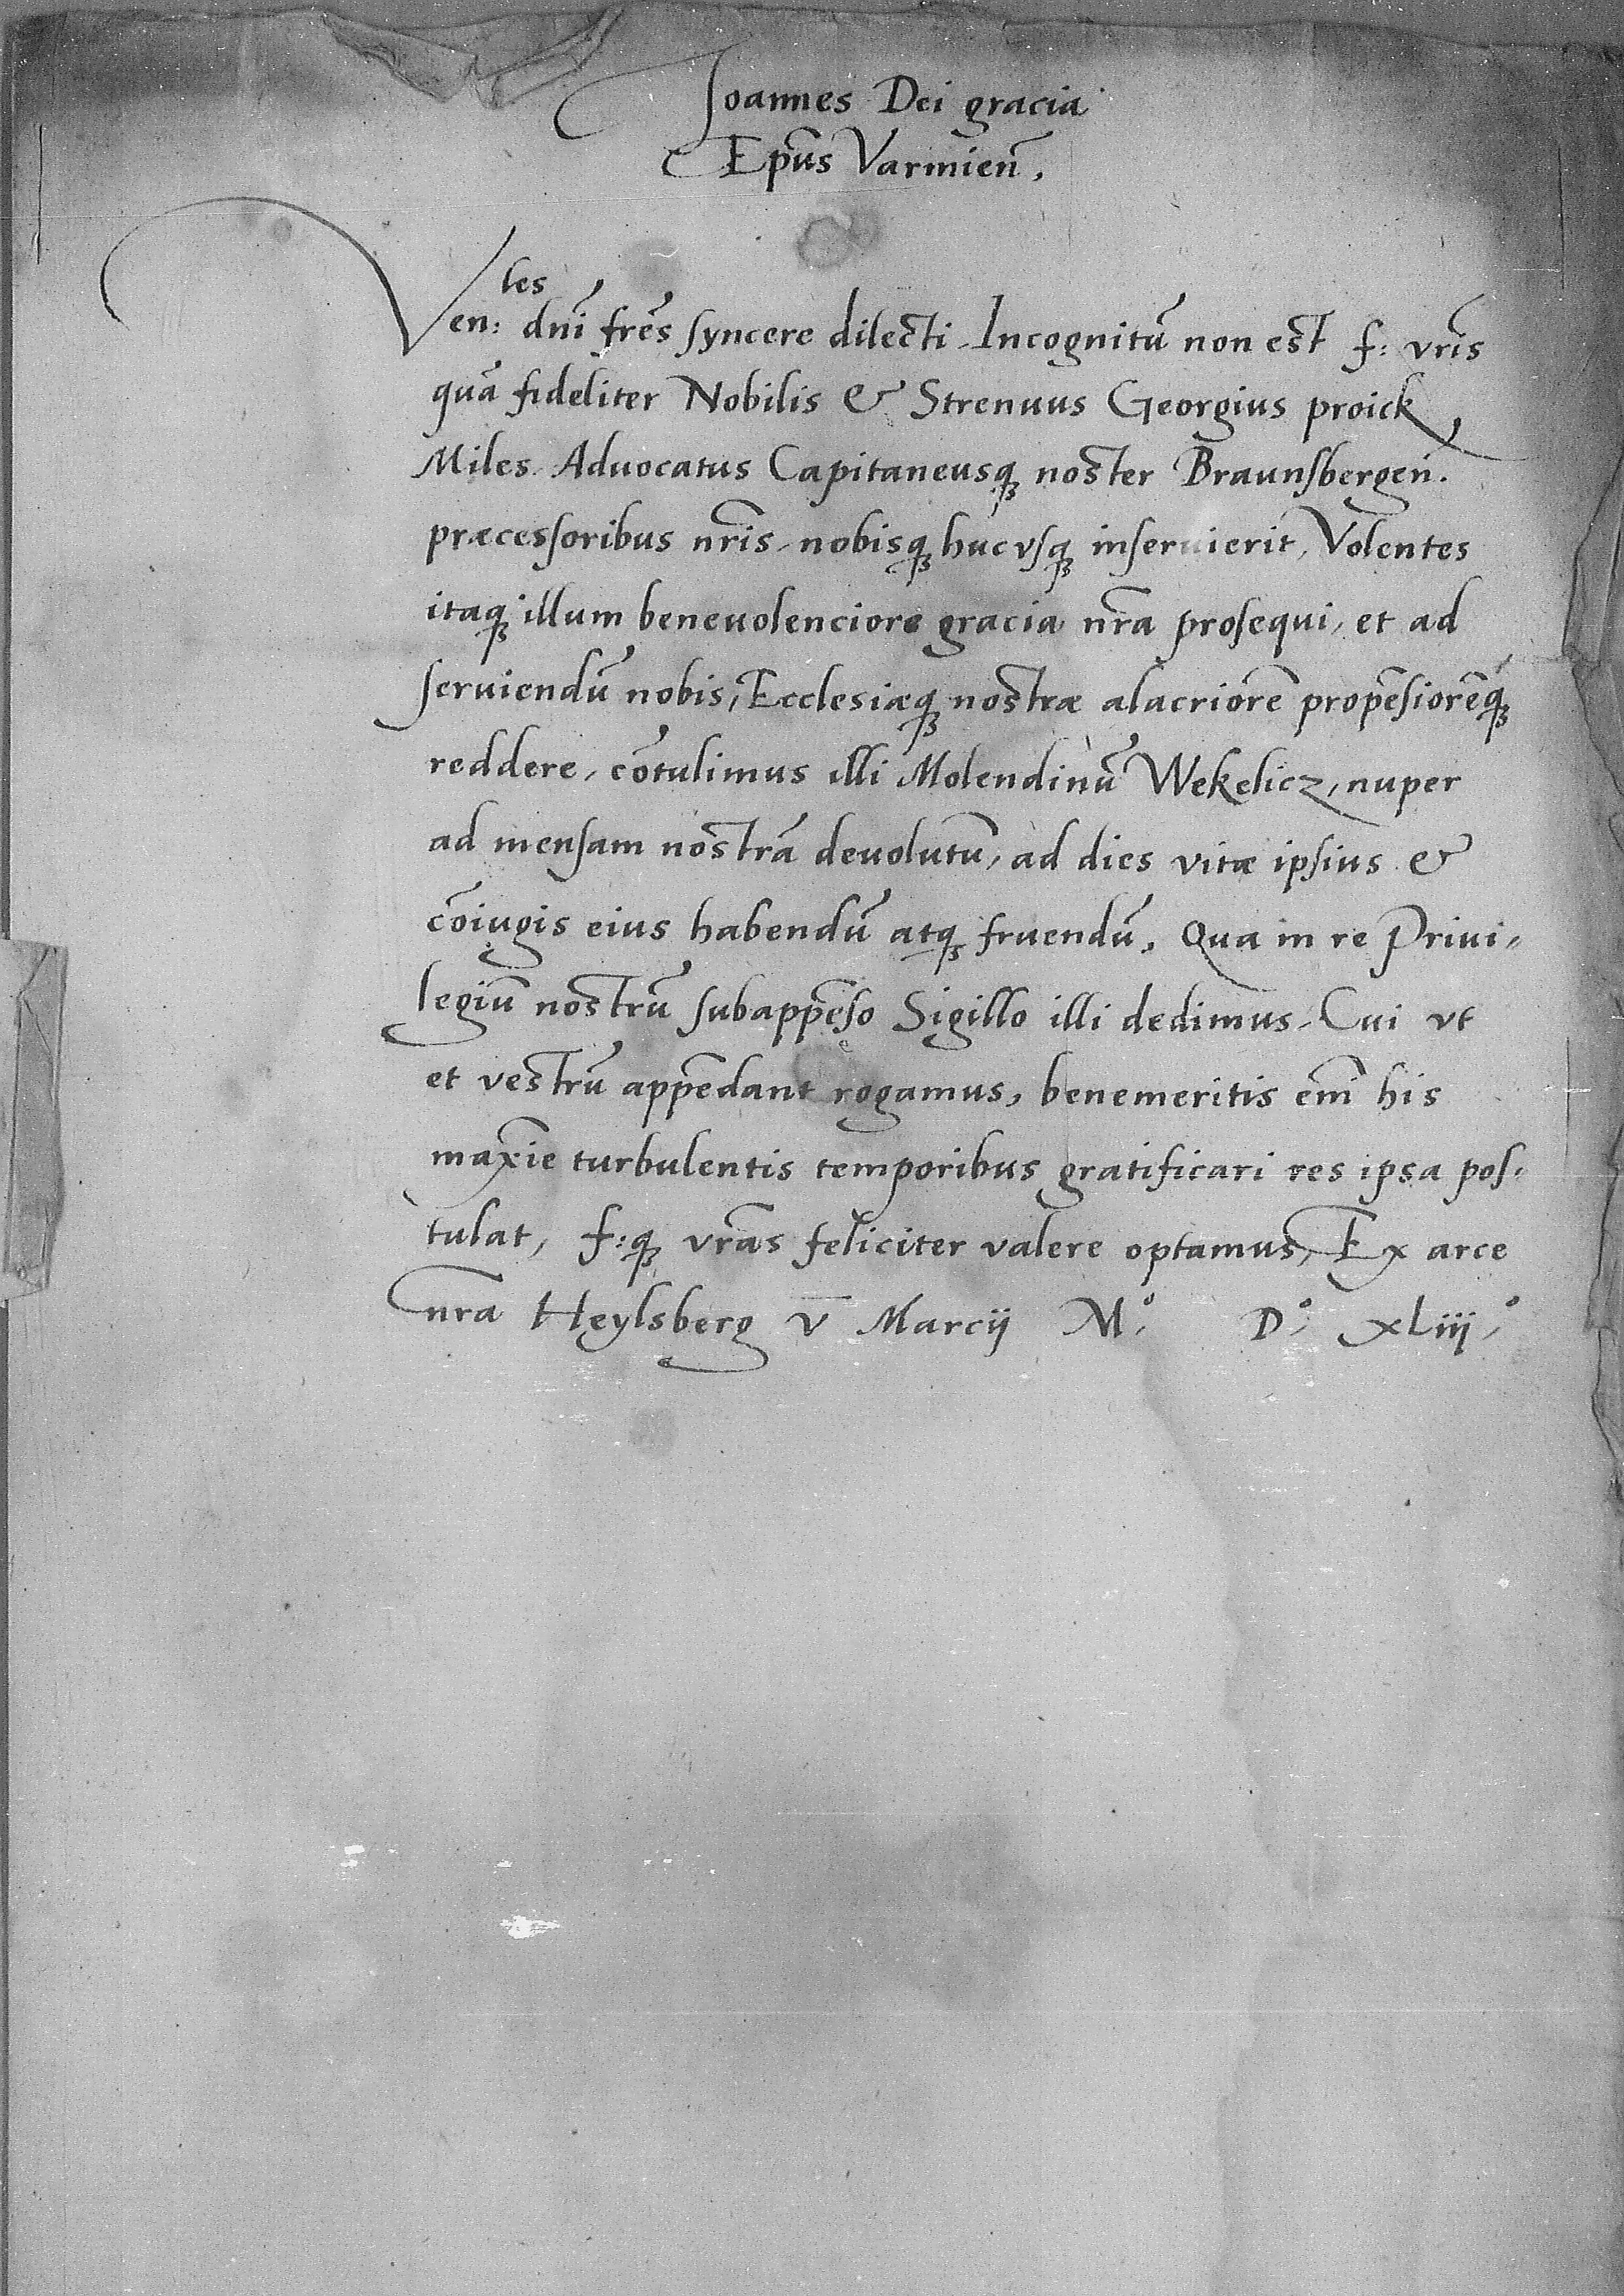 Joannes Dei gracia
Ep̄us Varmieñ.
Ven:les dn̄i frēs syncere dilecti. Incognitū non est f: vr̄is
quā fideliter Nobilis & Strenuus Georgius proick,
Miles. Aduocatus Capitaneusqꝫ noster Braunsbergeñ.
præcessoribus nr̄is, nobisqꝫ huc vsqꝫ inseruierit, Volentes
itaqꝫ illum beneuolenciore gracia nr̄a prosequi, et ad
seruiendū nobis, Ecclesiæqꝫ nostræ alacriorē propēsiorēqꝫ
reddere, cōtulimus illi Molendinū Wekelicz, nuper
ad mensam nostrā deuolutū, ad dies vitæ ipsius &
cōiugis eius habendū atqꝫ fruendū. Qua in re Priui-
legiū nostrū subappēso Sigillo illi dedimus. Cui vt
et vestrū appēdant rogamus, benemeritis em̄ his
maxīe turbulentis temporibus gratificari res ipsa pos-
tulat, f:qꝫ vr̄as feliciter valere optamus, Ex arce
nr̄a Heylsberg v̄ Marcij M.º D.º xLiij.º